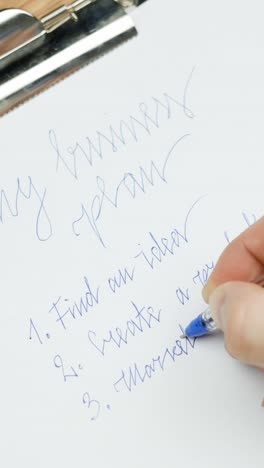 my business
plan
1. Find an idea
2. Create a
3. Market